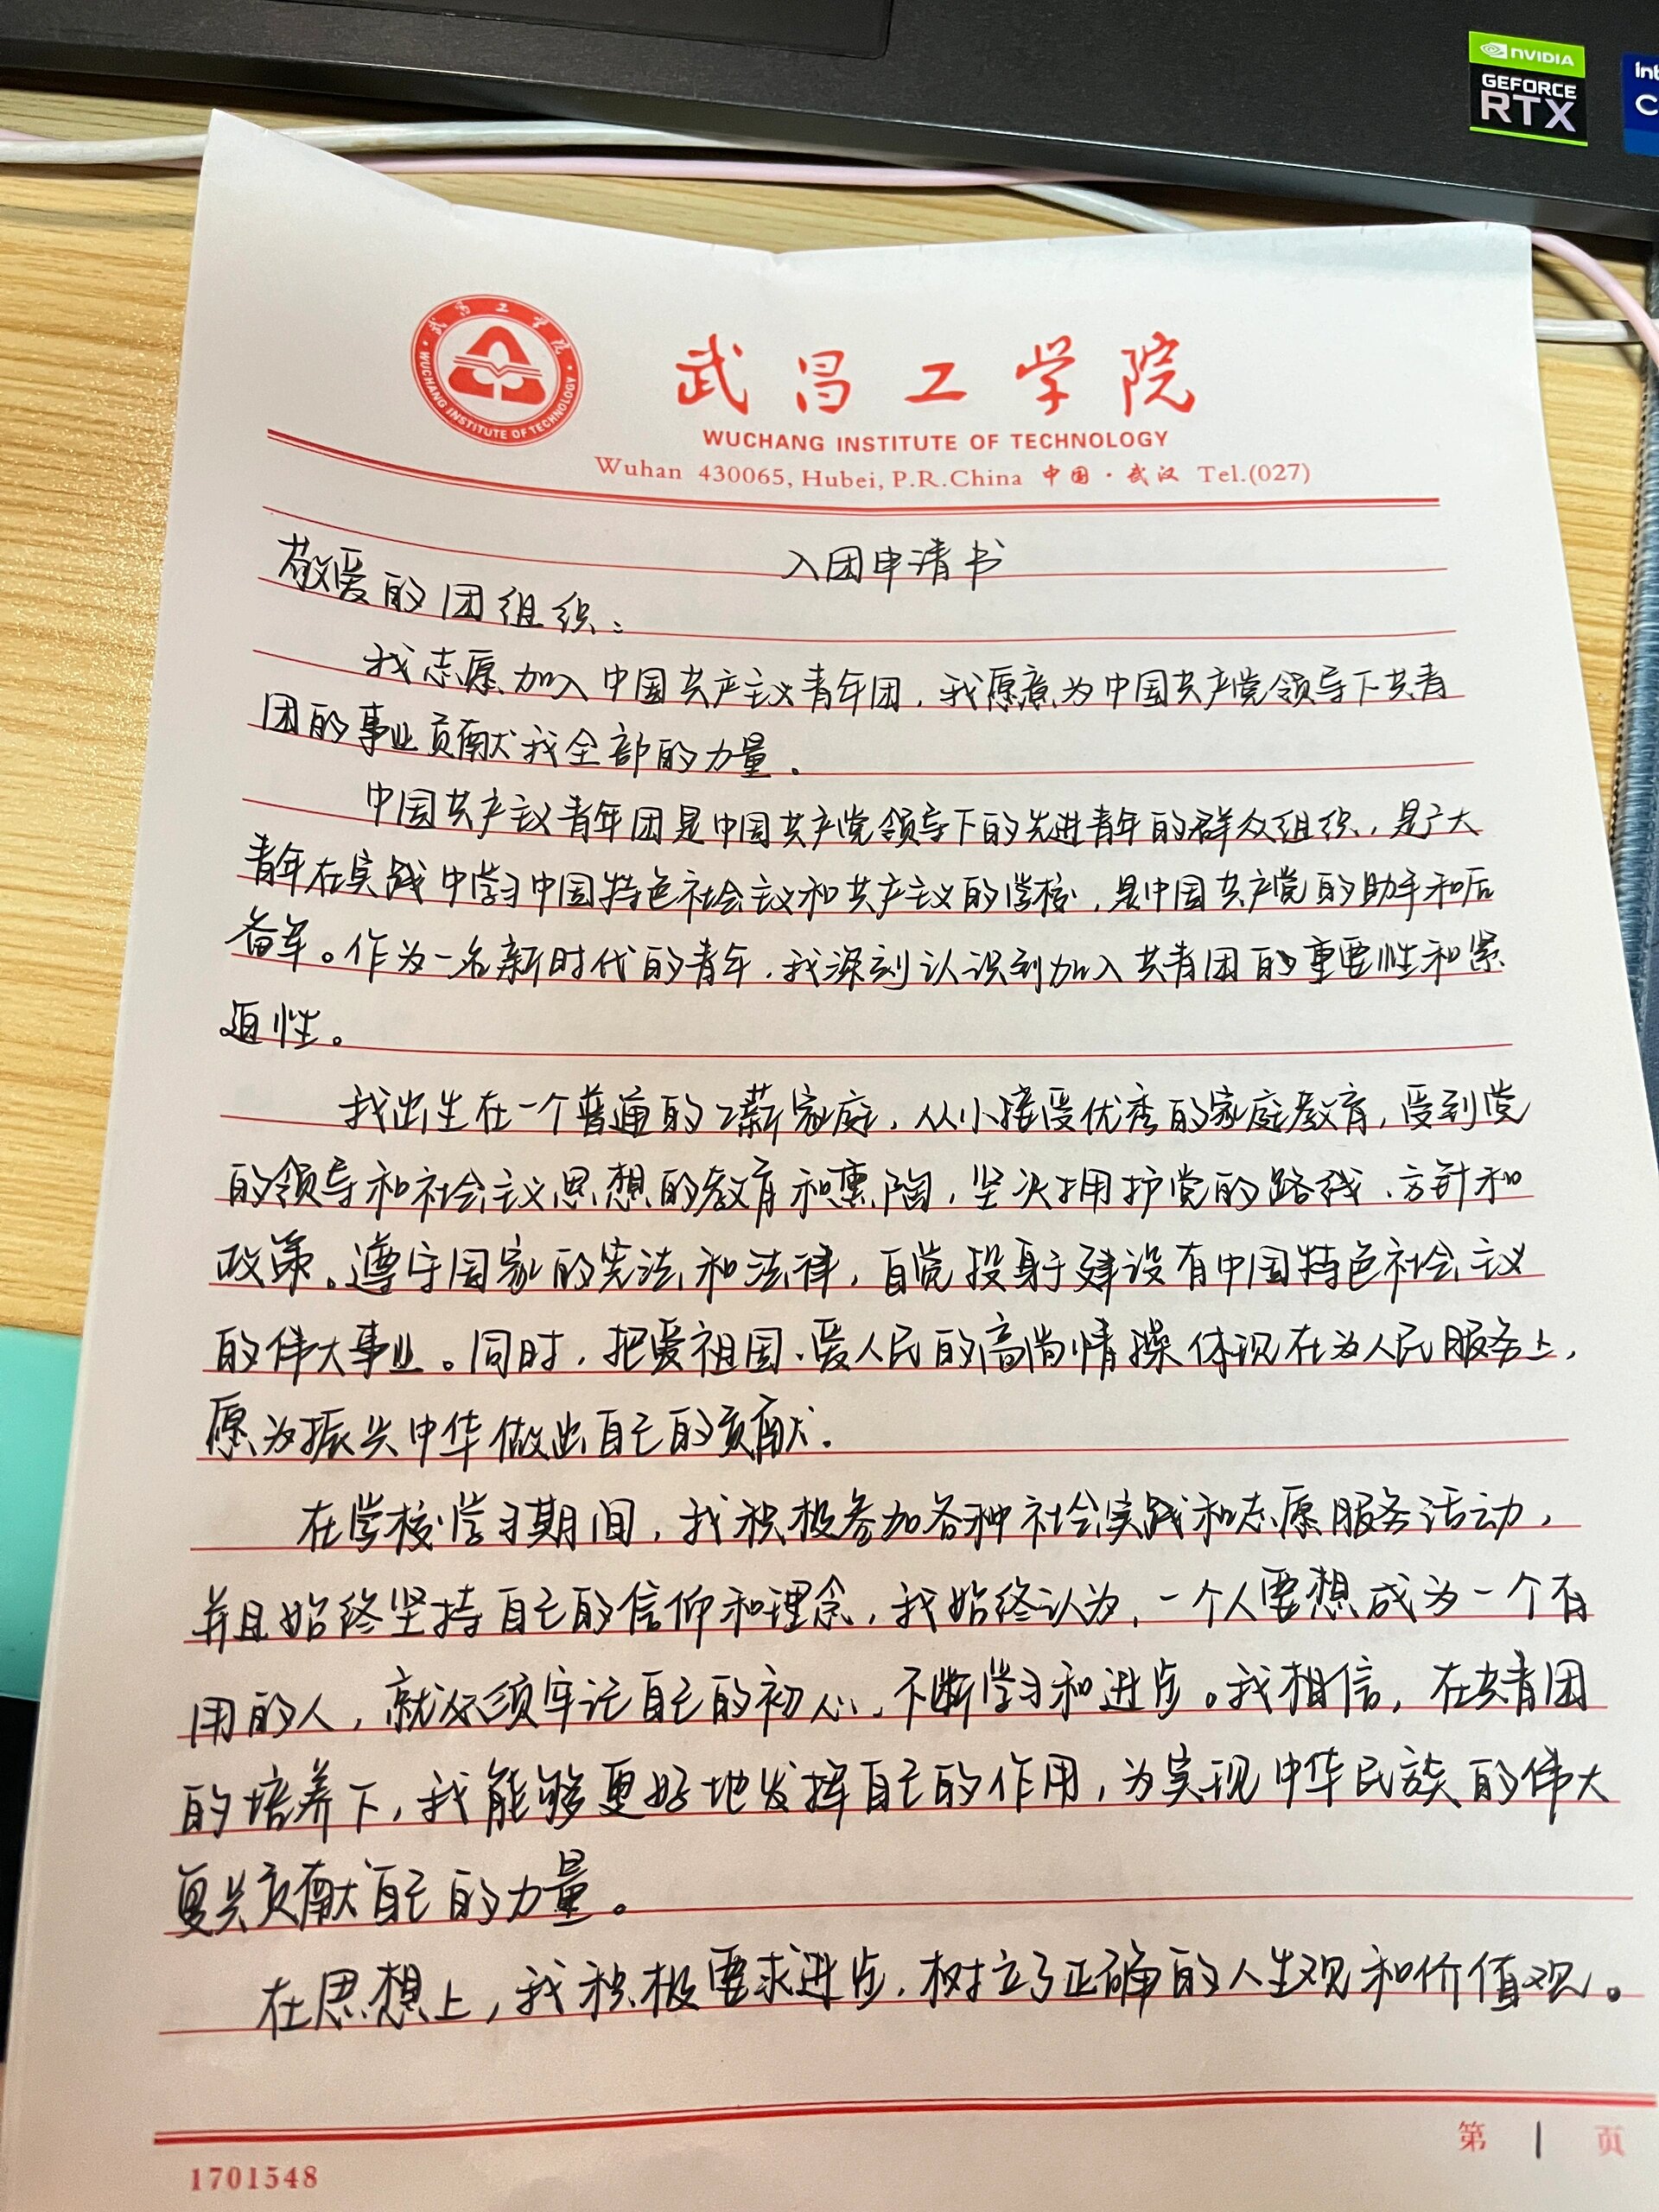 NVIDIA
GEFORCE
RTX
武昌工学院
WUCHANG INSTITUTE OF TECHNOLOGY
武昌工学院
WUCHANG INSTITUTE OF TECHNOLOGY
Wuhan 430065, Hubei, P.R.China 中国·武汉 Tel.(027)
入团申请书
敬爱的团组织:
我志愿加入中国共产主义青年团,我愿意为中国共产党领导下共青
团的事业贡献我全部的力量.
中国共产主义青年团是中国共产党领导下的先进青年的群众组织,是广大
青年在实践中学习中国特色社会主义和共产主义的学校,是中国共产党的助手和后
备军。作为一名新时代的青年,我深刻认识到加入共青团的重要性和紧
迫性。
我出生在一个普通的工薪家庭,从小接受优秀的家庭教育,受到党
的领导和社会主义思想的教育和熏陶,坚决拥护党的路线、方针和
政策。遵守国家的宪法和法律,自觉投身于建设有中国特色社会主义
的伟大事业。同时,把爱祖国、爱人民的高尚情操体现在为人民服务上,
愿为振兴中华做出自己的贡献.
在学校学习期间,我积极参加各种社会实践和志愿服务活动,
并且始终坚持自己的信仰和理念,我始终认为,一个人要想成为一个有
用的人,就必须牢记自己的初心,不断学习和进步。我相信,在共青团
的培养下,我能够更好地发挥自己的作用,为实现中华民族的伟大
复兴贡献自己的力量。
在思想上,我积极要求进步,树立了正确的人生观和价值观。
第 1 页
1701548